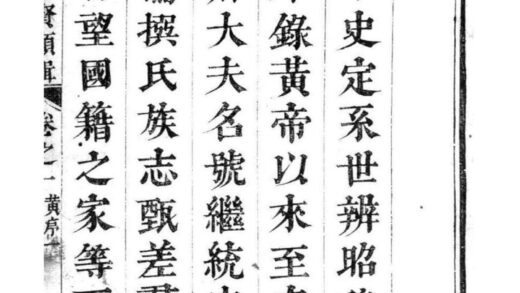 史定系世辨昭
錄黃帝以來至
大夫名號繼統
撰氏族志甄差
望國籍之家等
類輯 卷之一 黃序